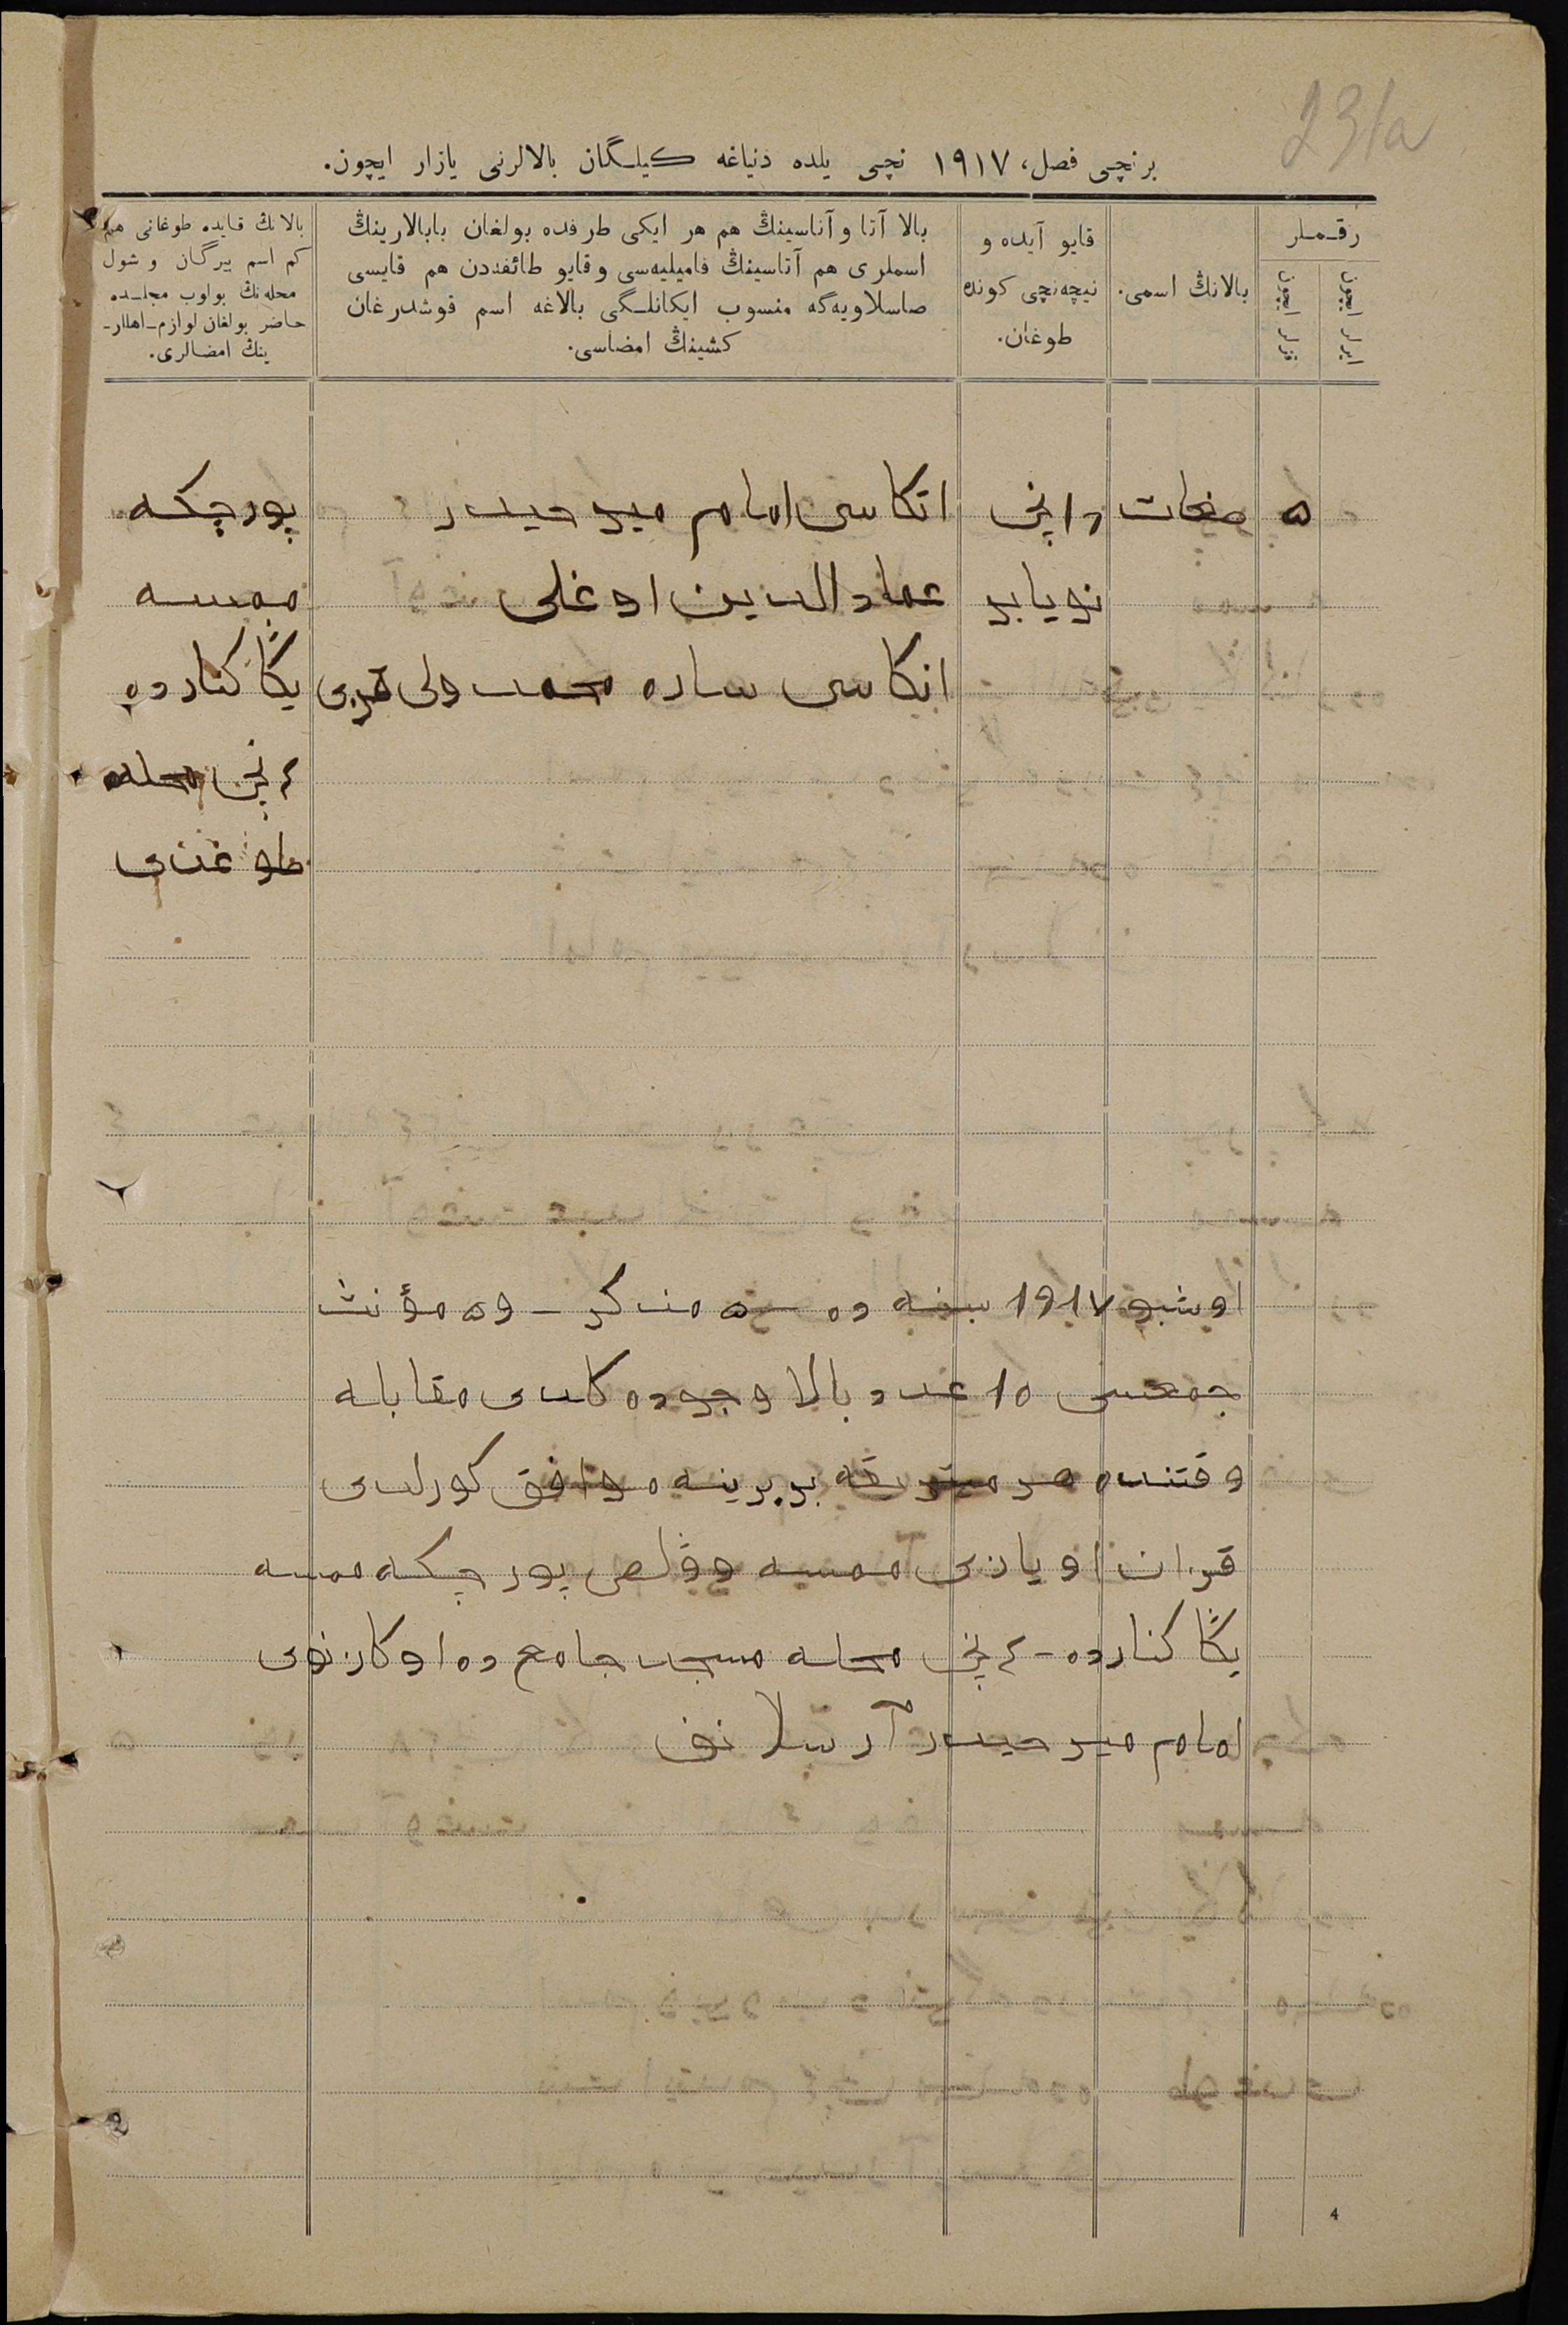 231а
برنچی فصل، ١٩١٧ نچی یلده دنیاغه کیلگان بالالرنی یازار ایچون.
رقملر
ایرلر ایچون
قزلر ایچون
بالانڭ اسمی.
قایو آیده و
نیچه‌نچی کونده
طوغان.
بالا آتا و آناسینڭ هم هر ایکی طرفده بولغان بابالارینڭ
اسملری هم آتاسینڭ فامیلیه‌سی و قایو طائفه‌دن هم قایسی
صاسلاویه‌گه منسوب ایکانلگی بالاغه اسم قوشدرغان
کشینڭ امضاسی.
بالانڭ قایده طوغانی هم
کم اسم بیرگان و شول
محله‌نڭ بولوب مجلسده
حاضر بولغان لوازم اهللر-
ینڭ امضالری.
۵ صفات ١٥نچی اتکاسی امام میر حیدر پورچکه
نویابر عماد الدین اوغلی ممسه
انکاسی ساره محمد ولی قزی یڭا کنارده
٢نچی محله
طوغدی
اوشبو ١٩١٧ سنه ده ـ ۵ مذکر ـ و ۵ مؤنث
جمعسی ١٠ عدد بالا وجوده کلدی مقابله
وقتنده هر میتریقه بربرینه موافق کورلدی
قزان اویازی ممسه وولصی پورچکه ممسه
یڭا کنارده ـ ٢نچی محله مسجد جامع ده اوکازنوی
امام میر حیدر آرسلانف
4